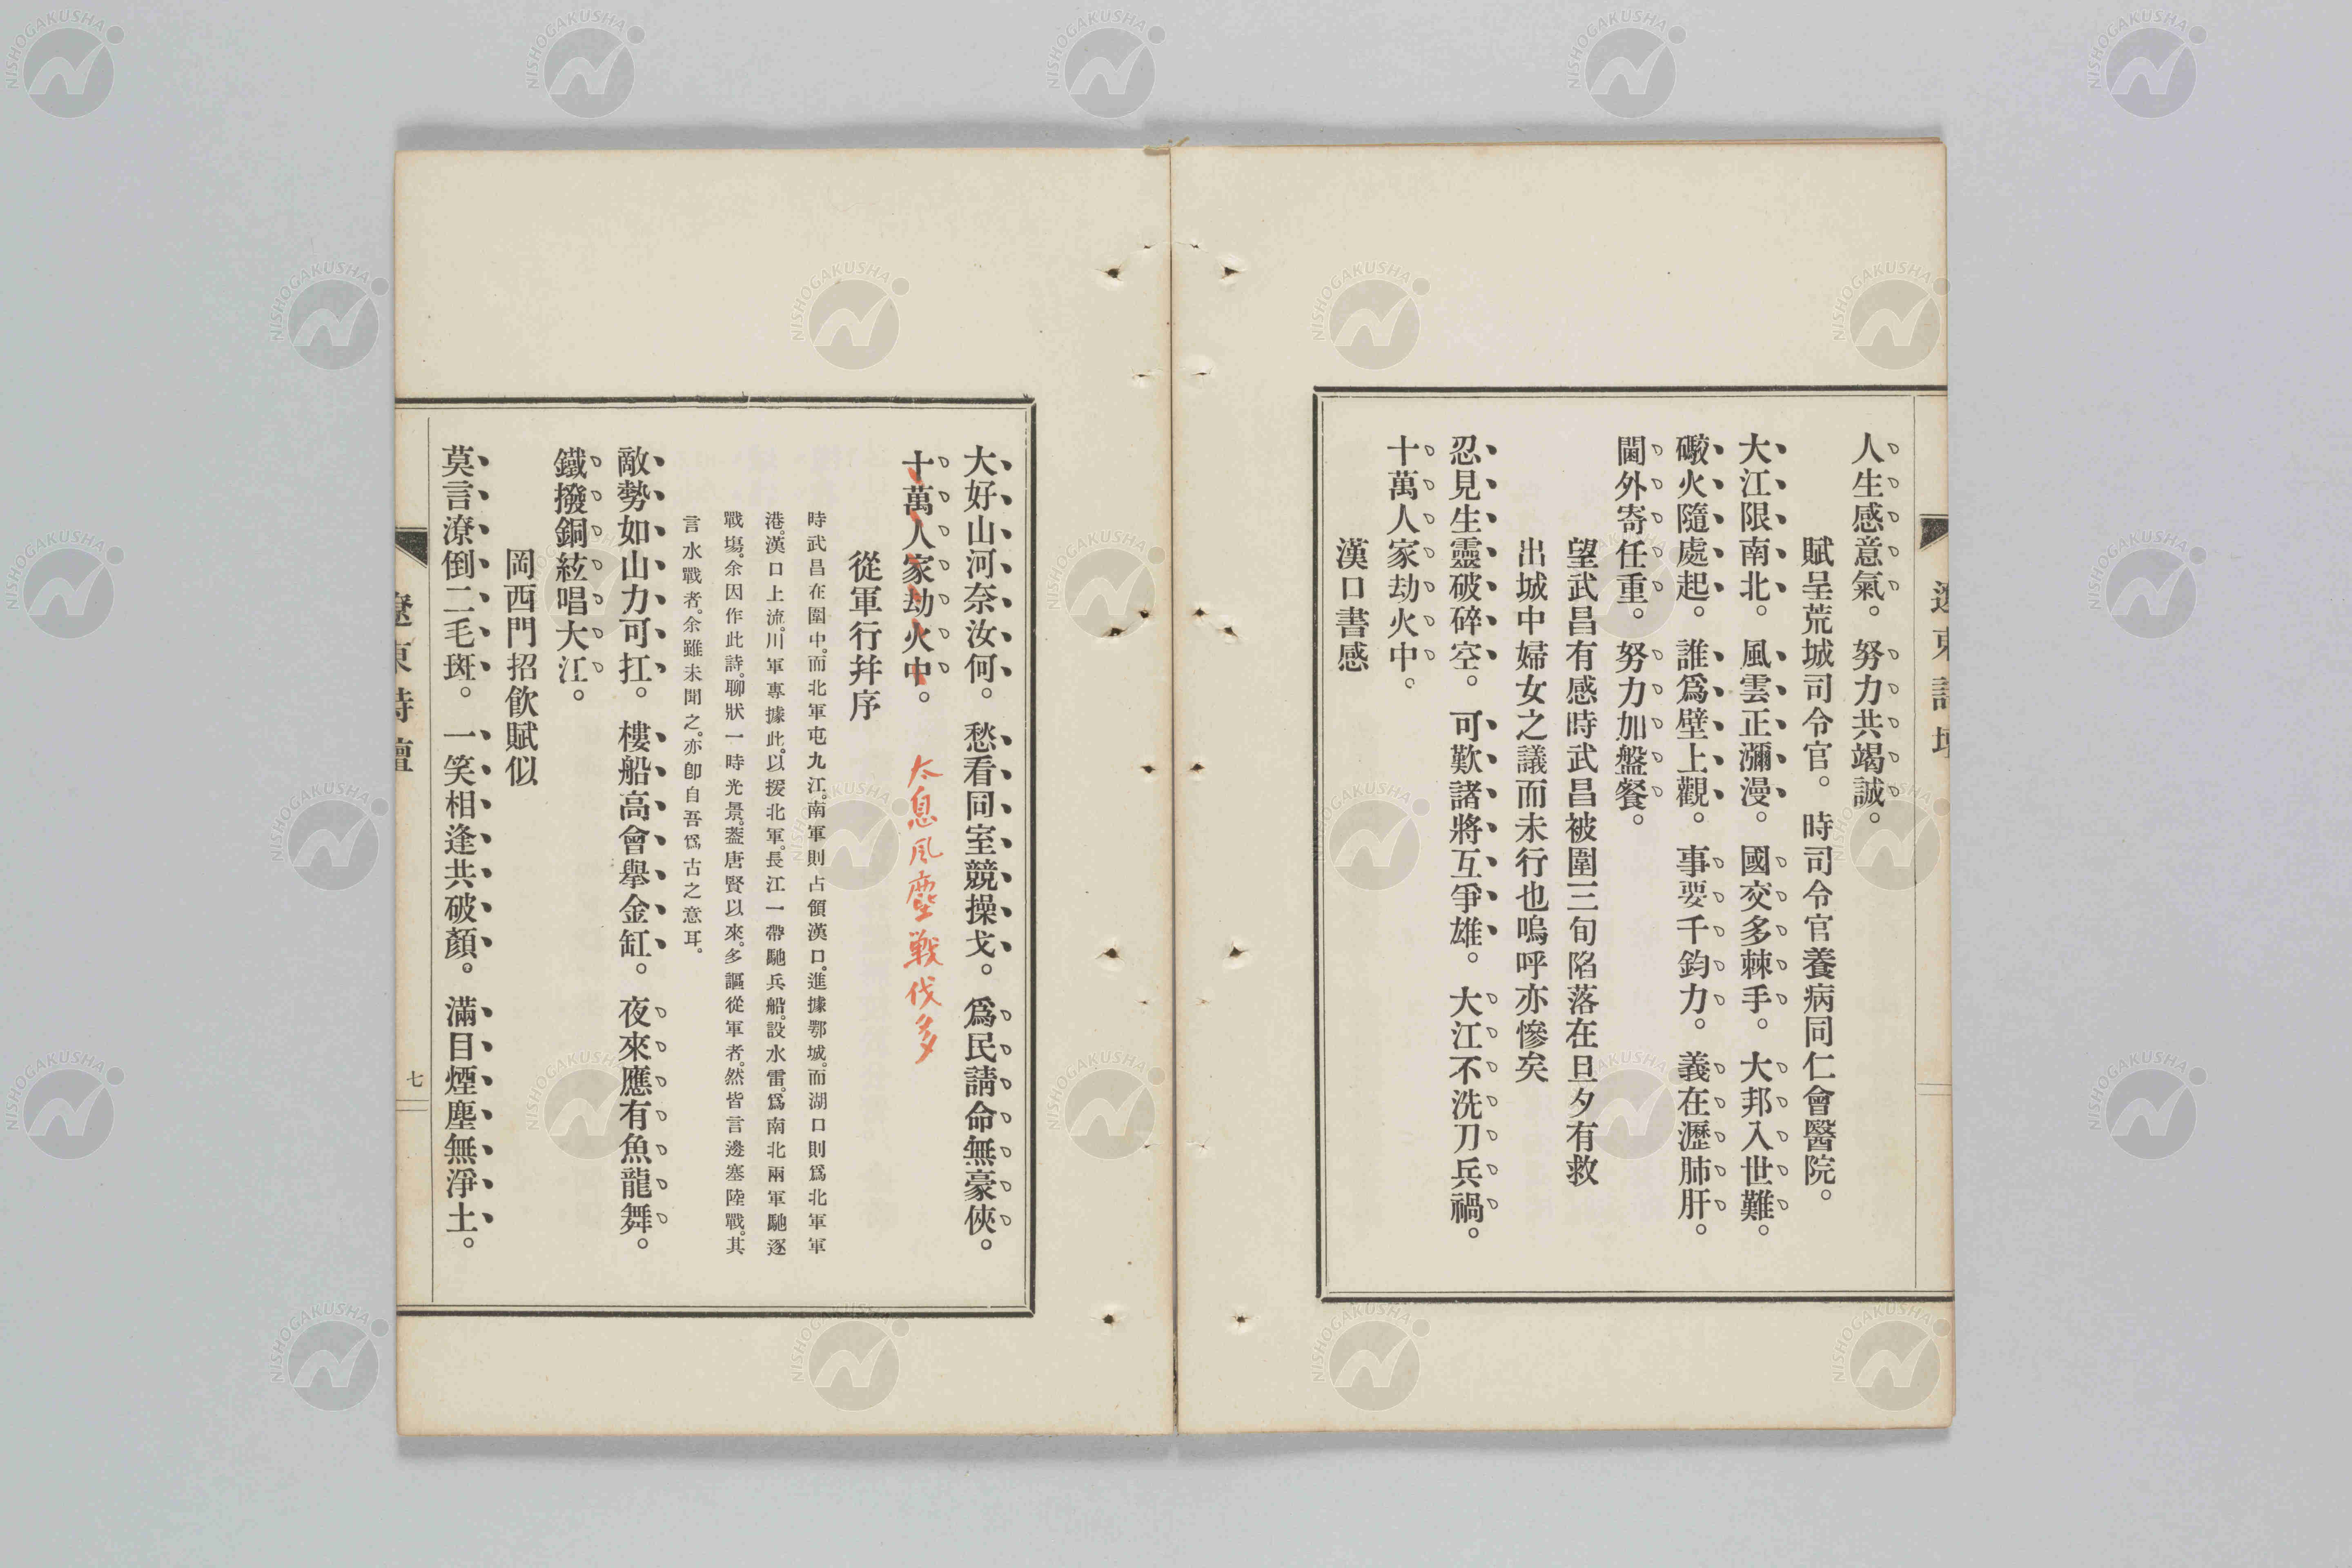 人生感意氣。努力共竭誠。
賦呈荒城司令官。時司令官養病同仁會醫院。
大江限南北。風雲正瀰漫。國交多棘手。大邦入世難。
礮火隨處起。誰爲壁上觀。事要千鈞力。義在瀝肺肝。
閫外寄任重。努力加盤餐。
望武昌有感時武昌被圍三旬陷落在旦夕有救
出城中婦女之議而未行也嗚呼亦慘矣
忍見生靈破碎空。可歎諸將互爭雄。大江不洗刀兵禍。
十萬人家劫火中。
漢口書感
大好山河奈汝何。愁看同室競操戈。爲民請命無豪俠。
十萬人家劫火中。太息風塵戰伐多
從軍行幷序
時武昌在圍中。而北軍屯九江。南軍則占領漢口。進據鄂城。而湖口則爲北軍軍
港。漢口上流。川軍專據此。以援北軍。長江一帶馳兵船。設水雷。爲南北兩軍馳逐
戰場。余因作此詩。聊狀一時光景。蓋唐賢以來。多謳從軍者。然皆言邊塞陸戰。其
言水戰者。余雖未聞之。亦卽自吾爲古之意耳。
敵勢如山力可扛。樓船高會擧金缸。夜來應有魚龍舞。
鐵撥銅絃唱大江。
岡西門招飮賦似
莫言潦倒二毛斑。一笑相逢共破顏。滿目煙塵無淨土。
遼東詩壇
七
NISHOGAKUSHA